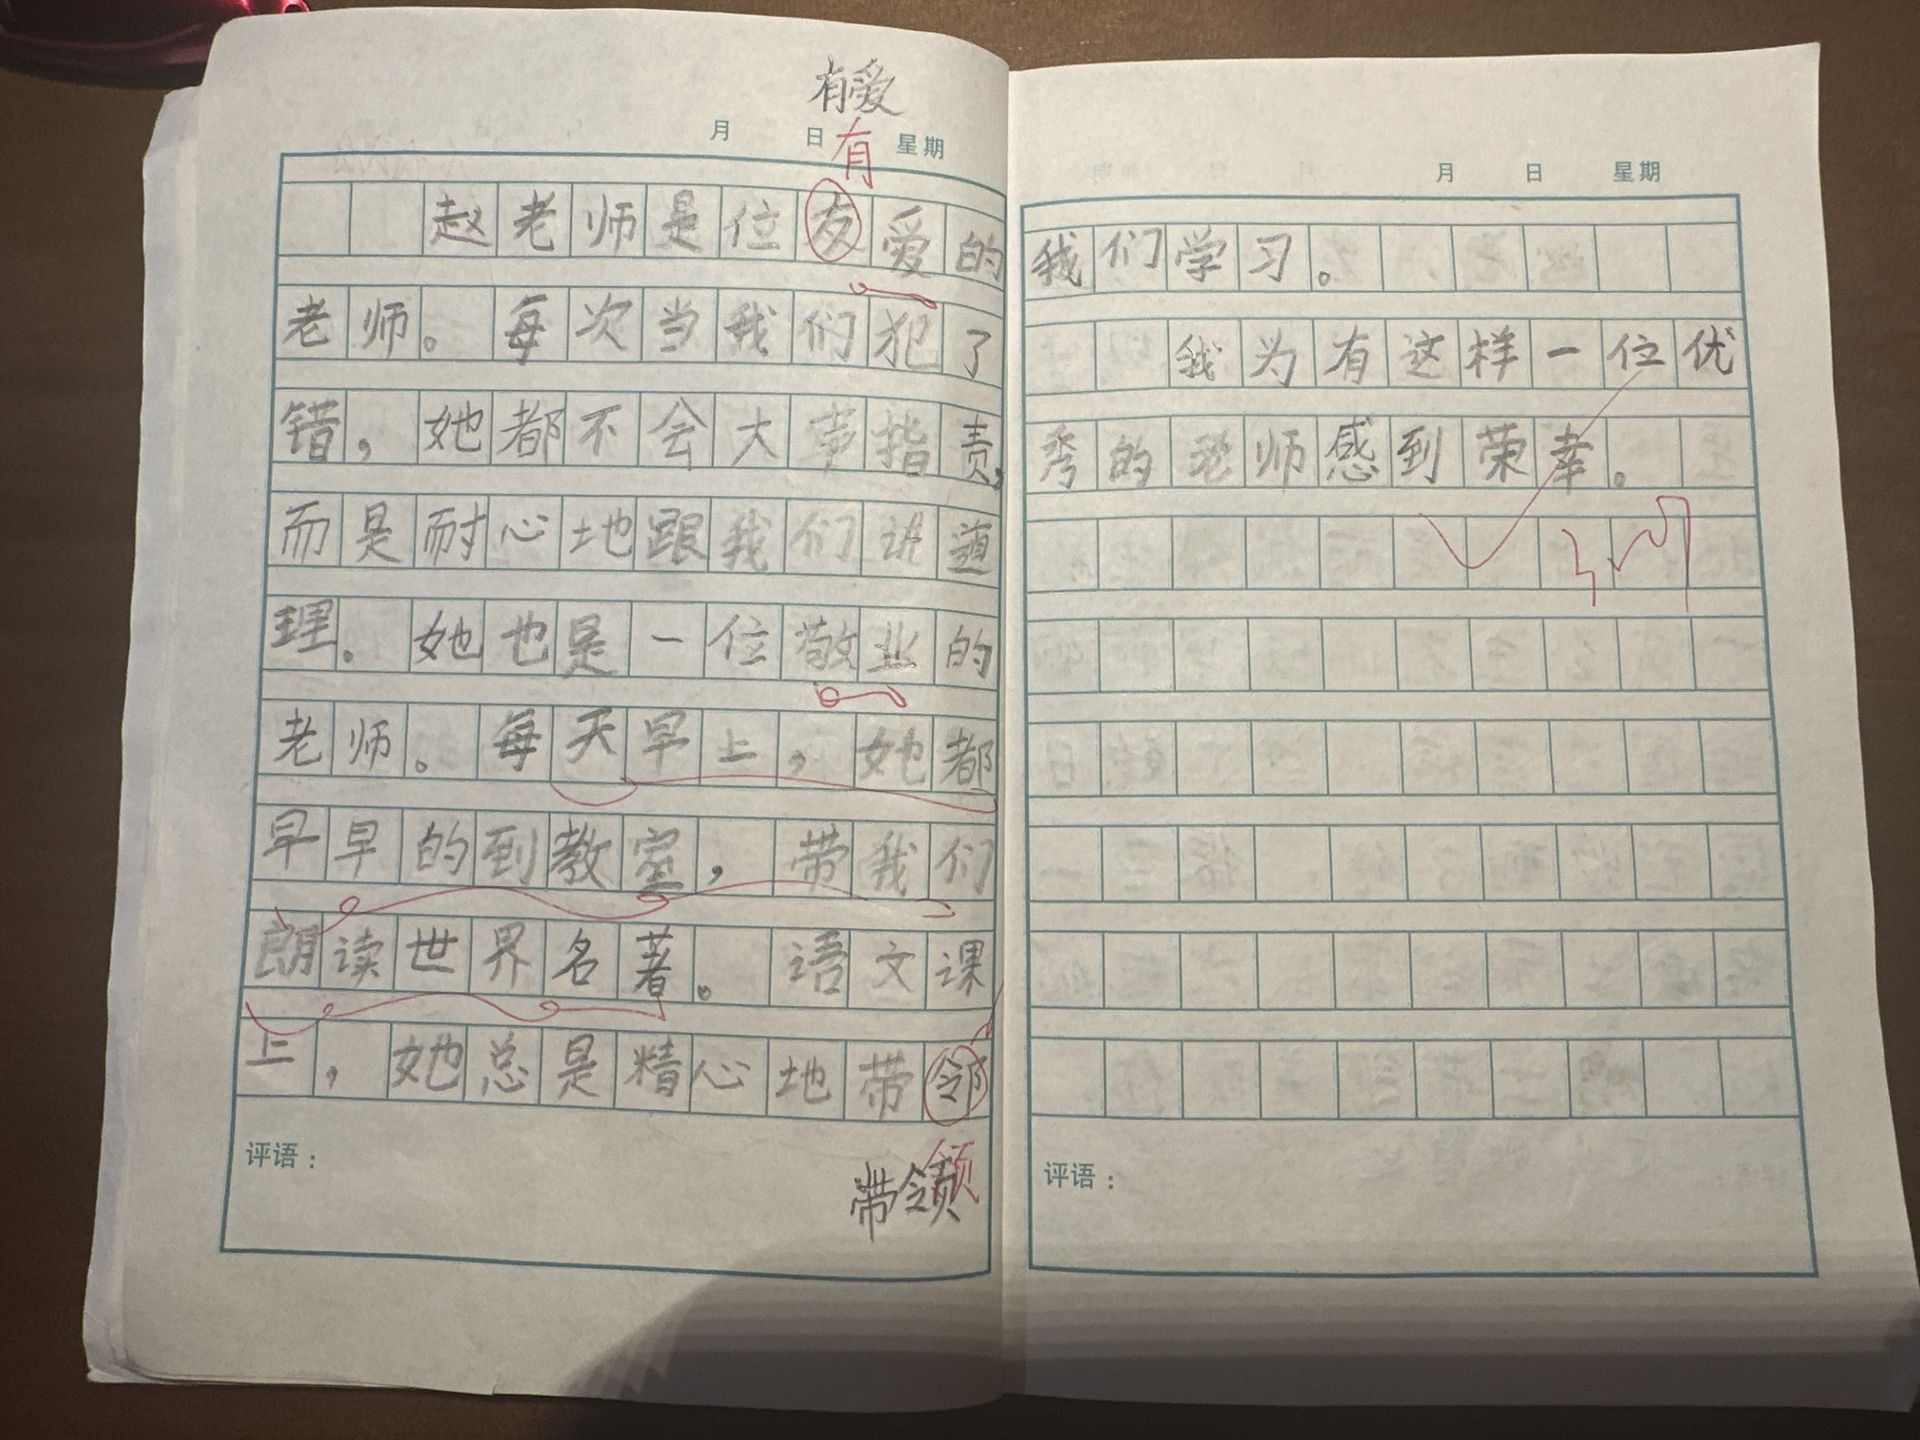 有爱
月 日 有 星期
赵老师是位友爱的
老师。每次当我们犯了
错，她都不会大声指责，
而是耐心地跟我们讲道
理。她也是一位敬业的
老师。每天早上，她都
早早的到教室，带我们
朗读世界名著。语文课
上，她总是精心地带邻
评语：
领
带领
月 日 星期
我们学习。
我为有这样一位优
秀的老师感到荣幸。
评语：